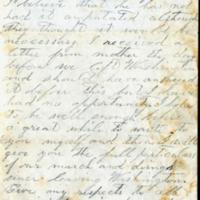 I believe that he has not
had it amputated although
they thought it would be
necessary. I received a
from Mother the day
before we left
and should have answered
it before this but I have
had no opportunity
to be well enough
a great while to write to
you myself and then I will
give you the full particulars
of our march and doings
since leaving Washington
Give my respects to all